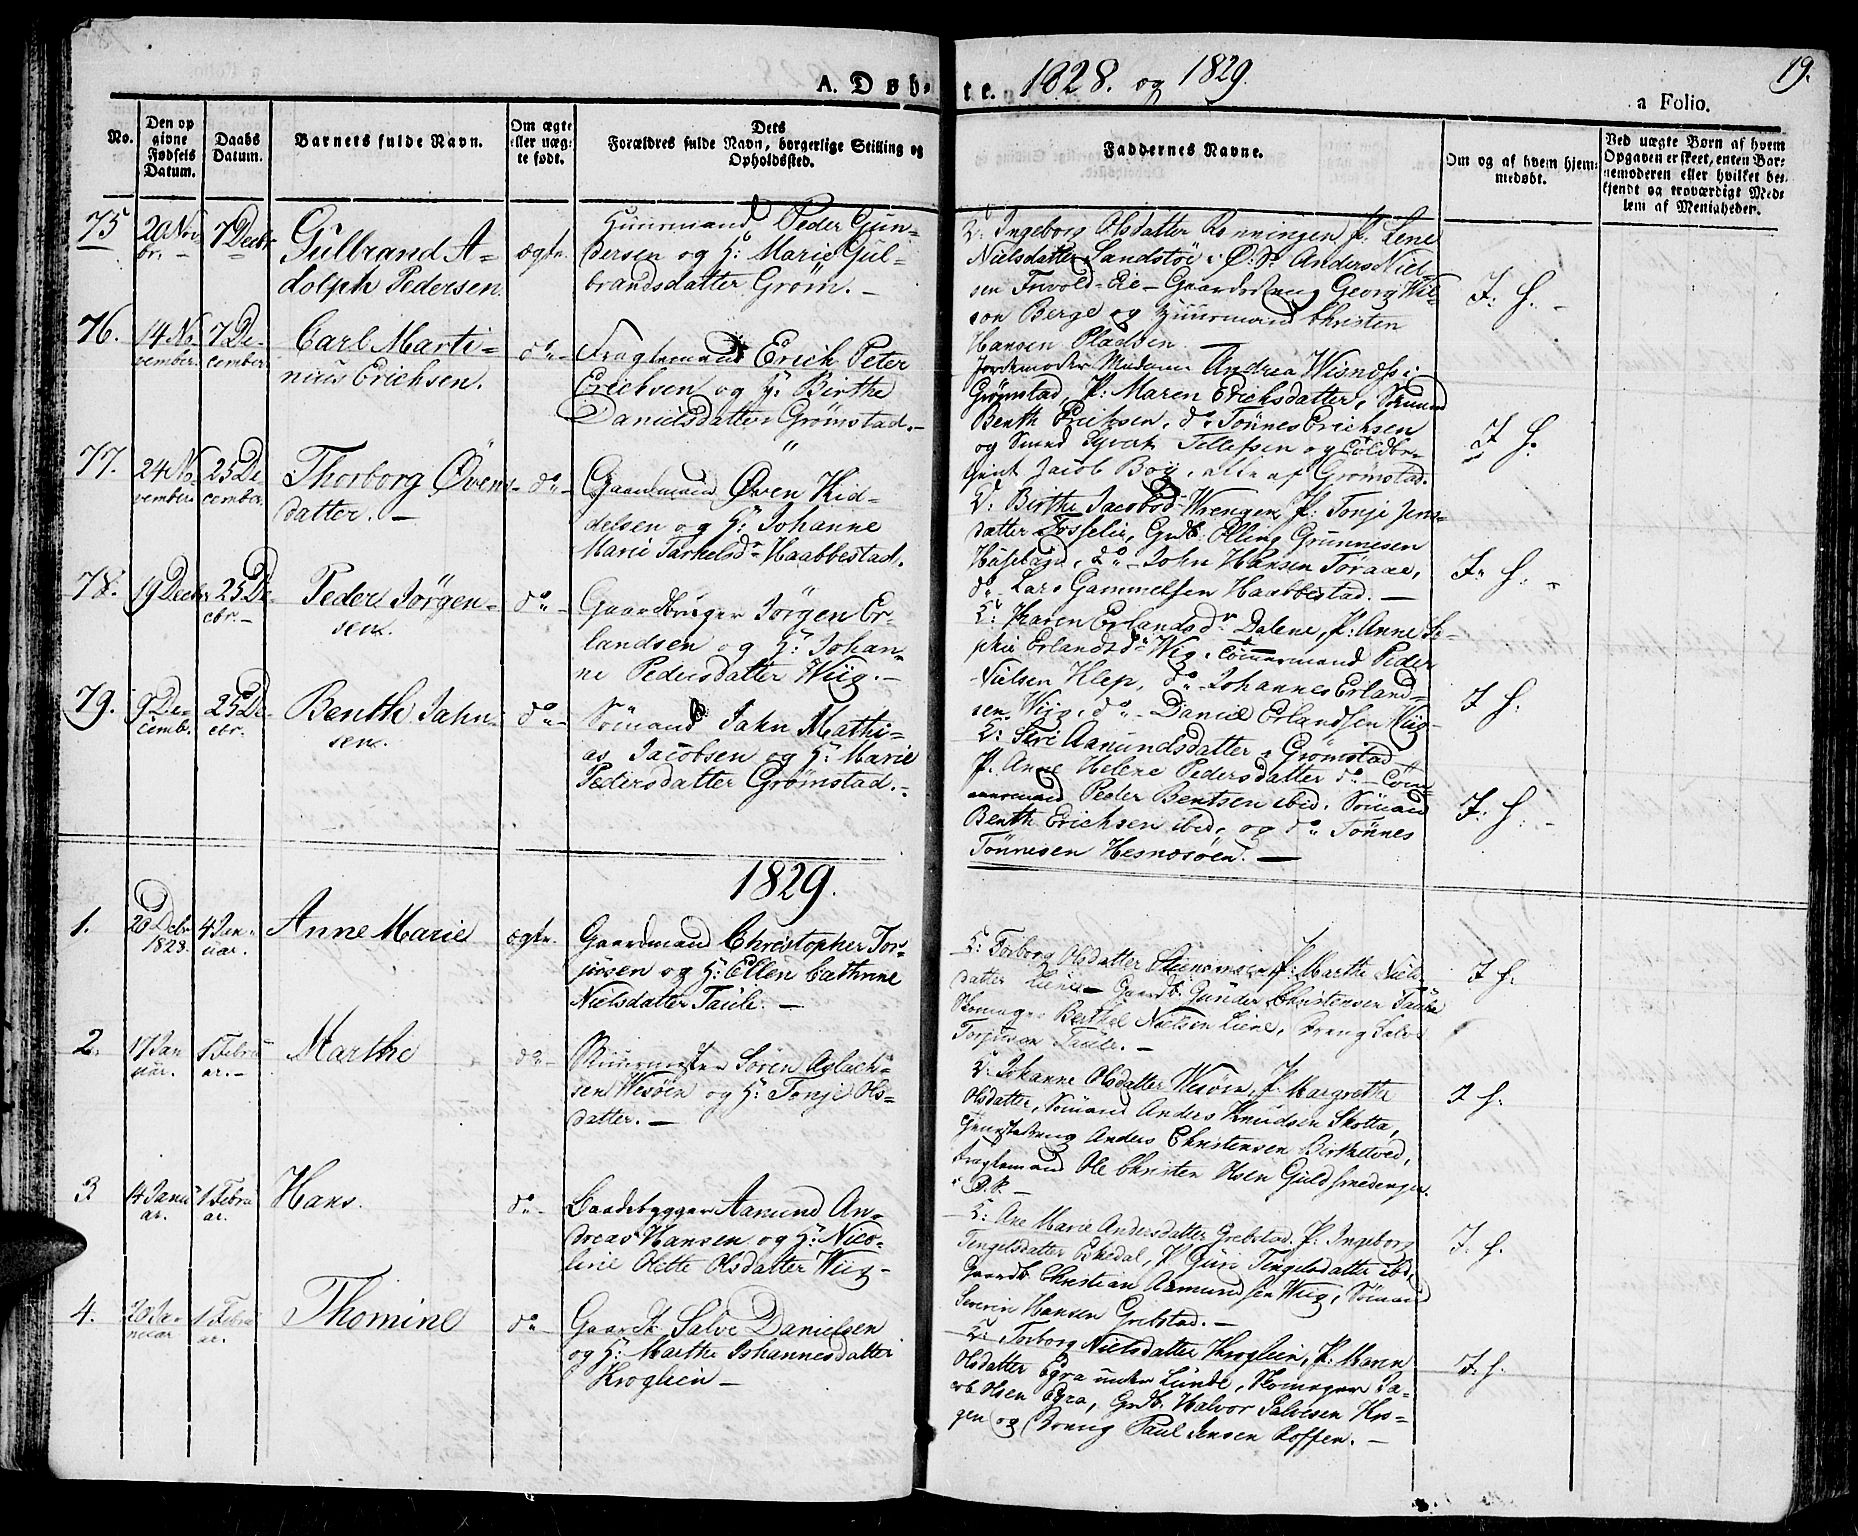 A. Døb-
te. 1828. og 1829.
19.
a Folio.
No.
Den op
givne
Fødsels
Datum.
Daabs
Datum.
Barnets fulde Navn.
Om ægte
eller uæg-
te født.
Dets
Forældres fulde Navn, borgerlige Stilling og
Opholdssted.
Faddernes Navne.
Om og af hvem hjem-
medøbt.
Ved uægte Børn af hvem
Opgaven er skeet, enten Bar-
nemoderen eller hvilket be-
kjendt og troværdigt Med-
lem af Menigheder.
75
20 Nov
br. -
7 Decbr
Gulbrand A-
dolph Pedersen.
ægte.
Huusmand Peder Gun-
dersen og H: Marie Gul-
brandsdatter Grøm. -
Ingeborg Olsdatter Rønningen P. Lene
Nielsdatter Sandstøe i Ø. S. Anders Niel-
sen Frivold-Eie - Gaardsdreng Georg
Berge og Huusmand Christen
Hansen Pladsen
I. H. -
76.
14 No
vember.
7 De-
cember
Carl Marti-
nius Erichsen.
do -
Fragtemand Erich Peter
Erichsen og H: Birthe
Danielsdatter Grømstad. -
Jordemoder Madame Andrea
Grømstad, P: Maren Erichsdatter, Sømand
Benth Erichsen, do Tønnes Erichsen
og Smed Syvert Tellefsen og Toldbe-
tjent Jacob Boy, alle af Grømstad.
I H.
77.
24 No
vember
25 De
cember.
Thorborg Øvens-
datter. -
do -
Gaardmand Øven Kid-
delsen og H: Johanne
Marie Tarkelsdr Haabbestad.
Birthe Jacobsd Wrengen, P. Tonje Jens-
datter Fosselie, Grdb. Elling Grunnesen
John Hansen Toraae,
do Lars Gammelsen Haabbestad. -
I. H. -
78.
19 Decbr
25 De-
cbr. -
Peder Jörgen-
sen.
do -
Gaardbruger Jörgen Er-
landsen og H: Johan-
ne Pedersdatter Wiig. -
Karen Erlandsdr Dalene, P: Anne So-
phie Erlandsdr Wig, Tømmermand Peder
Nielsen Klep, do Johannes Erland-
sen Wiig, do - Daniel Erlandsen Wiig
I H.
79.
9 De-
cemb.
25 De-
cbr.
Benth Jahn-
sen.
do -
Sømand Jahn Mathi-
as Jacobsen og H: Marie
Pedersdatter Grømstad. -
Siri Aanundsdatter, Grømstad -
P. Anne Helene Pedersdatter do - Tøm-
mermand Peder Bentsen ibid. Sømand
Benth Erichsen ibid, og do Tönnes
Tönnesen Hesnæsøen. -
I. H. -
1829.
1.
20 Decbr
1828.
4 Jan-
uar.
Anne Marie
ægte.
Gaardmand Christopher Tor-
jusen og H: Ellen Cathrine
Nielsdatter Taule. -
Torborg Olsdatter P: Marthe Niels-
datter Liene - Gaardb. Gunder Christensen Taule
Skomager Berthel Nielsen Liene, Dreng Salve
Torjusen Taule. -
I H.
2.
17 Jan
uar.
1 Febru
ar. -
Marthe
do -
Muurmester Sören Aslach-
sen Wesöen og H: Tonje Ols-
datter. -
Johanne Olsdatter Wesøen, P. Margrethe
Olsdatter, Sömand Anders Knudsen Skotta,
Tjenestedreng Anders Christensen Birkketved,
Fragtemand Ole Christen Olsen Guldsmedengen
I H.
3
14 Janu
ar.
1 Febru
ar.
Hans.
do -
Baadebygger Aamund An-
dreas Hansen og H: Nico-
line Olette Olsdatter Wiig -
Ane Marie Andersdatter Grebstad. P: Ingeborg
Tengelsdatter Eskedal, P. Guri Tengelsdatter ibd,
Gaardb. Christian Aamundsen Wiig, Sömand
Severin Hansen Grebstad. -
I. H.
4.
20 Ja-
nuar
1 Febru
ar.
Thomine
do -
Gaardb. Salve Danielsen
og H: Marthe Johannesdatter
Kroglien -
Torborg Nielsdatter Kroglien, P. Maren
Olsdatter Egra under Lunde, Skomager Ja-
cob Olsen Egra, Grdb. Halvor Salvesen Kro-
gen og Dreng Paul Jensen Roffen. -
I. H.